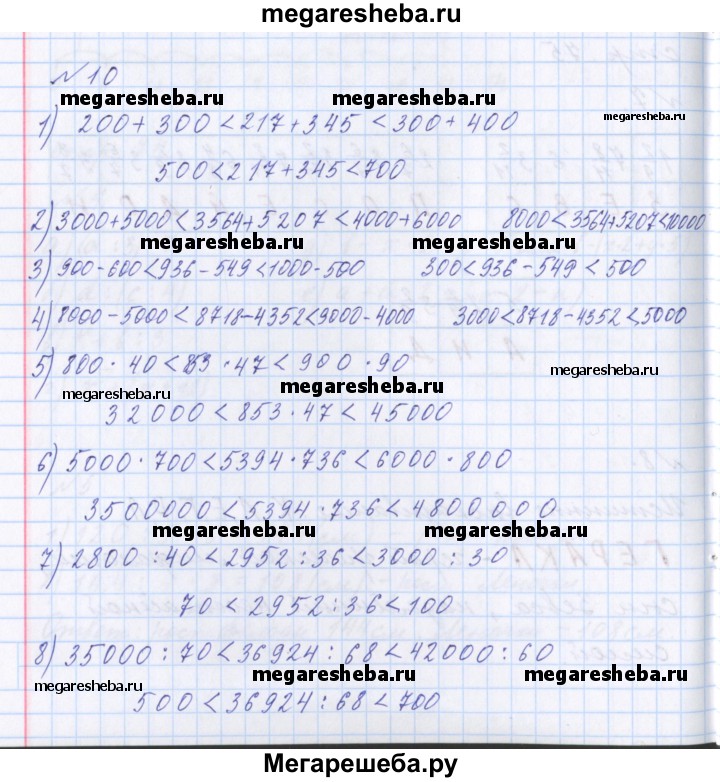 megaresheba.ru
№10
megaresheba.ru megaresheba.ru
1) 200 + 300 < 217 + 345 < 300 + 400
500 < 217 + 345 < 700
2) 3000 + 5000 < 3564 + 5207 < 4000 + 6000 8000 < 3564 + 5207 < 10000
megaresheba.ru megaresheba.ru
3) 900 - 600 < 936 - 549 < 1000 - 500 300 < 936 - 549 < 500
4) 8000 - 5000 < 8718 - 4352 < 9000 - 4000 3000 < 8718 - 4352 < 5000
5) 800 · 40 < 853 · 47 < 900 · 90
megaresheba.ru megaresheba.ru megaresheba.ru
32000 < 853 · 47 < 45000
6) 5000 · 700 < 5394 · 736 < 6000 · 800
3500000 < 5394 · 736 < 4800000
megaresheba.ru megaresheba.ru
7) 2800 : 40 < 2952 : 36 < 3000 : 30
70 < 2952 : 36 < 100
8) 35000 : 70 < 36924 : 68 < 42000 : 60
megaresheba.ru megaresheba.ru
500 < 36924 : 68 < 700
Мегарешеба.ру